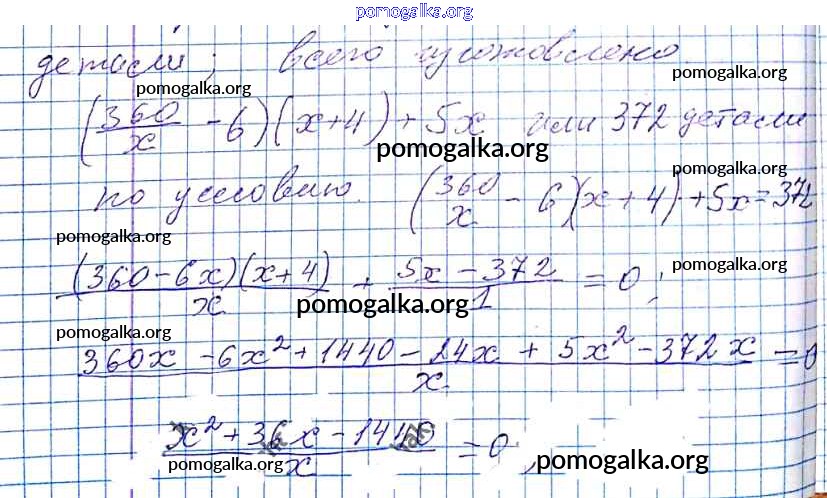 pomogalka.org
детали; всего изготовлено
pomogalka.org
pomogalka.org
(360/x - 6)(x+4) + 5x или 372 детали
pomogalka.org
по условию. (360/x - 6)(x+4)+5x=372
pomogalka.org
pomogalka.org
(360-6x)(x+4)/x + 5x-372/1 = 0;
pomogalka.org
pomogalka.org
pomogalka.org
360x - 6x² + 1440 - 24x + 5x² - 372x/x = 0
x² + 36x - 1440/x = 0,
pomogalka.org
pomogalka.org